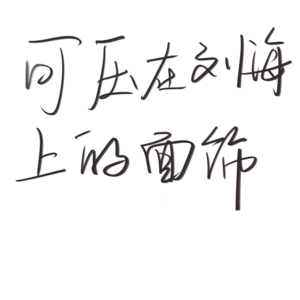 可压在刘海
上的面饰